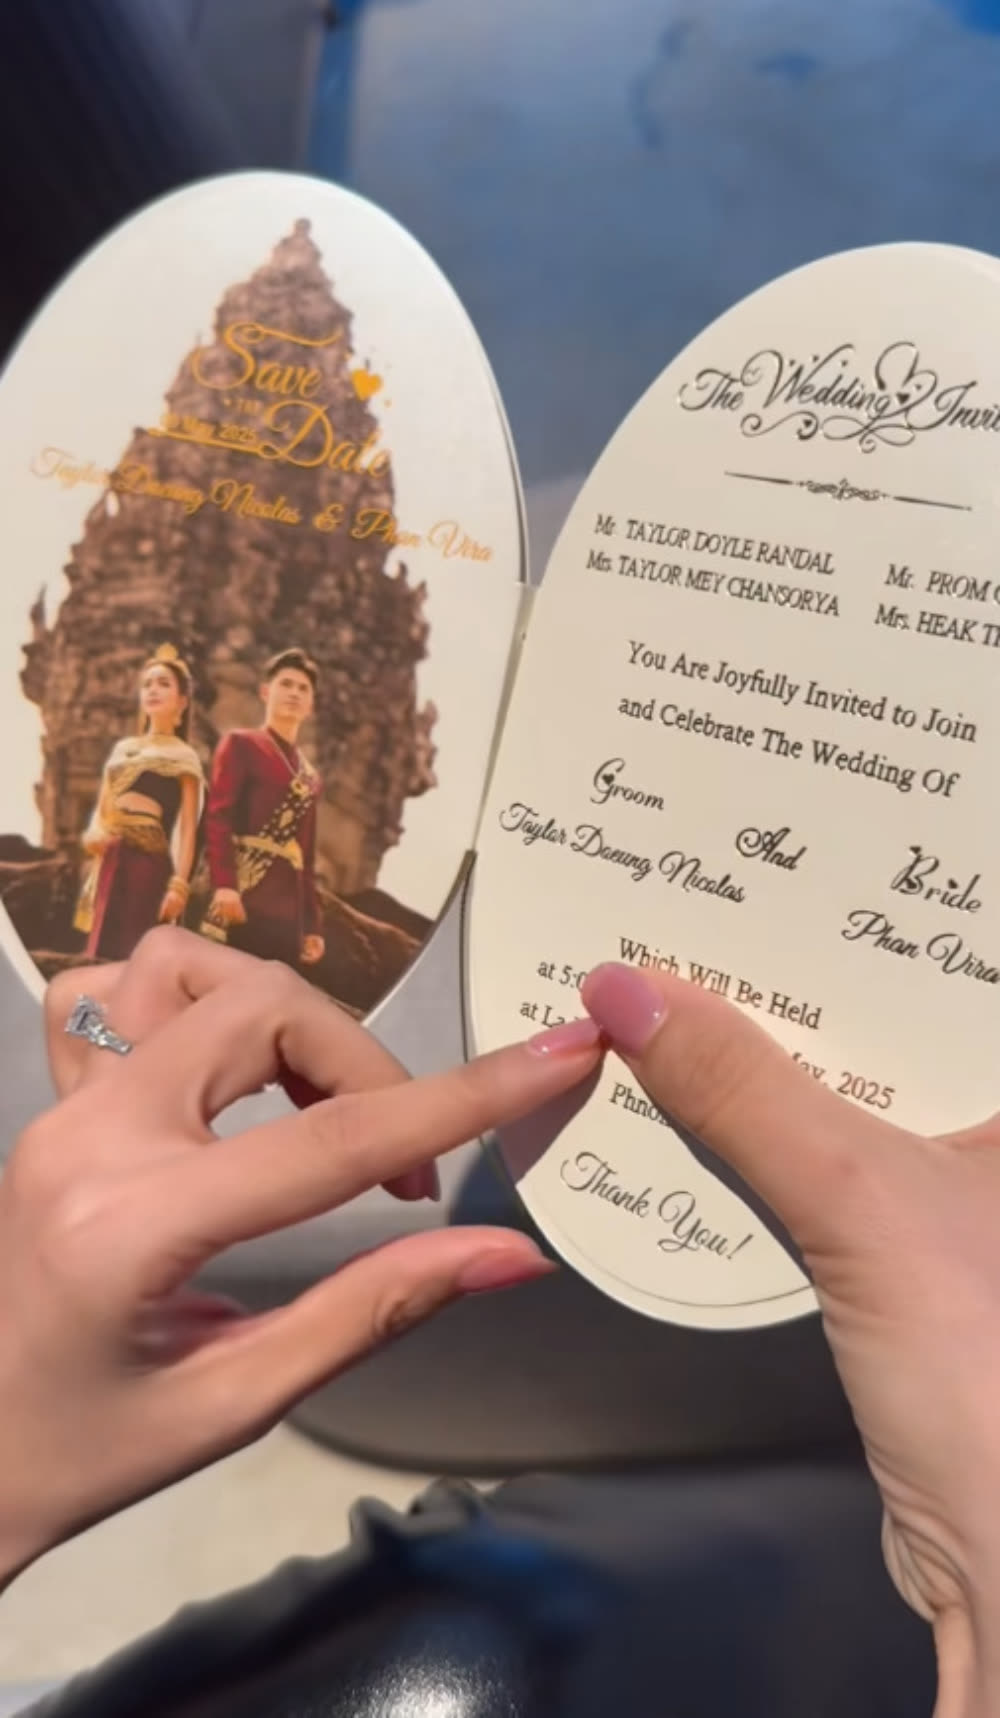 Save
THE
Date
May 2025
Taylor Daeung Nicolas & Phan Vira
The Wedding
Mr. TAYLOR DOYLE RANDAL
Mrs. TAYLOR MEY CHANSORYA
Mr. PROM
Mrs. HEAK
You Are Joyfully Invited to Join
and Celebrate The Wedding Of
Groom
Taylor Daeung Nicolas
And
Bride
Phan Vira
Which Will Be Held
at
at
2025
Thank You!